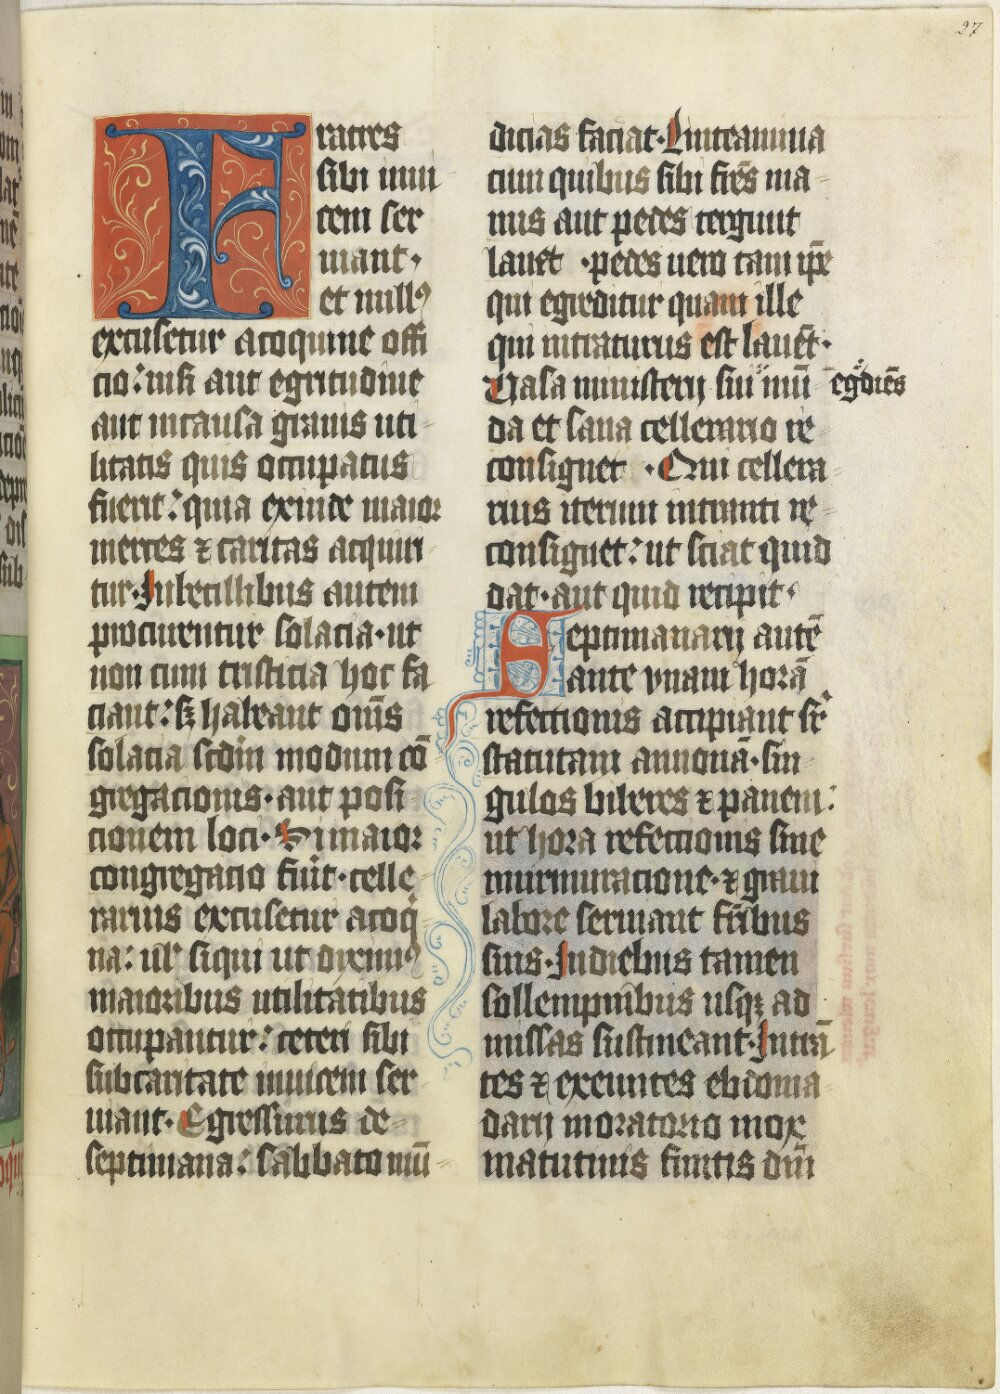 27
Fratres
sibi inui
cem ser
uiant,
et nullꝰ
excusetur acoquine offi
cio: nisi aut egritudine
aut incausa grauis uti
litatis quis occupatus
fuerit: quia exinde maior
merces ⁊ caritas acquiri
tur. Inbecillibus autem
procurentur solacia. ut
non cum tristicia hoc fa
ciant: sꝫ habeant om̄s
solacia scdm modum cō
gregacionis. aut posi
cionem loci. Si maior
congregacio fuīt. celle
rarius excusetur acoqi
na: ul' siqui ut diximꝰ
maioribus utilitatibus
occupantur: ceteri sibi
subcaritate inuicem ser
uiant. Egressurus de
septimana: sabbato mū
dicias faciat. Linteamina
cum quibus sibi frēs ma
nus aut pedes tergunt
lauēt. pedes uero tam ip̄e
qui egreditur quam ille
qui intraturus est lauēt.
Uasa ministerij sui mū
egͣdiēs
da et sana cellerario re
consignet. Qui cellera
rius iterum intranti re
consignet: ut sciat quid
dat. aut quid recipit.
Septimanarij autē
ante vnam horā
refectionis accipiant sr̄
statutam annonā. sin
gulos biberes ⁊ panem:
ut hora refectionis sine
murmuracione. ⁊ graui
labore seruiant frībus
suis. Indiebus tamen
sollempnibus usqꝫ ad
missas sustineant. Intrā
tes ⁊ exeuntes ebdoma
darij inoratorio mox
matutinis finitis dnī